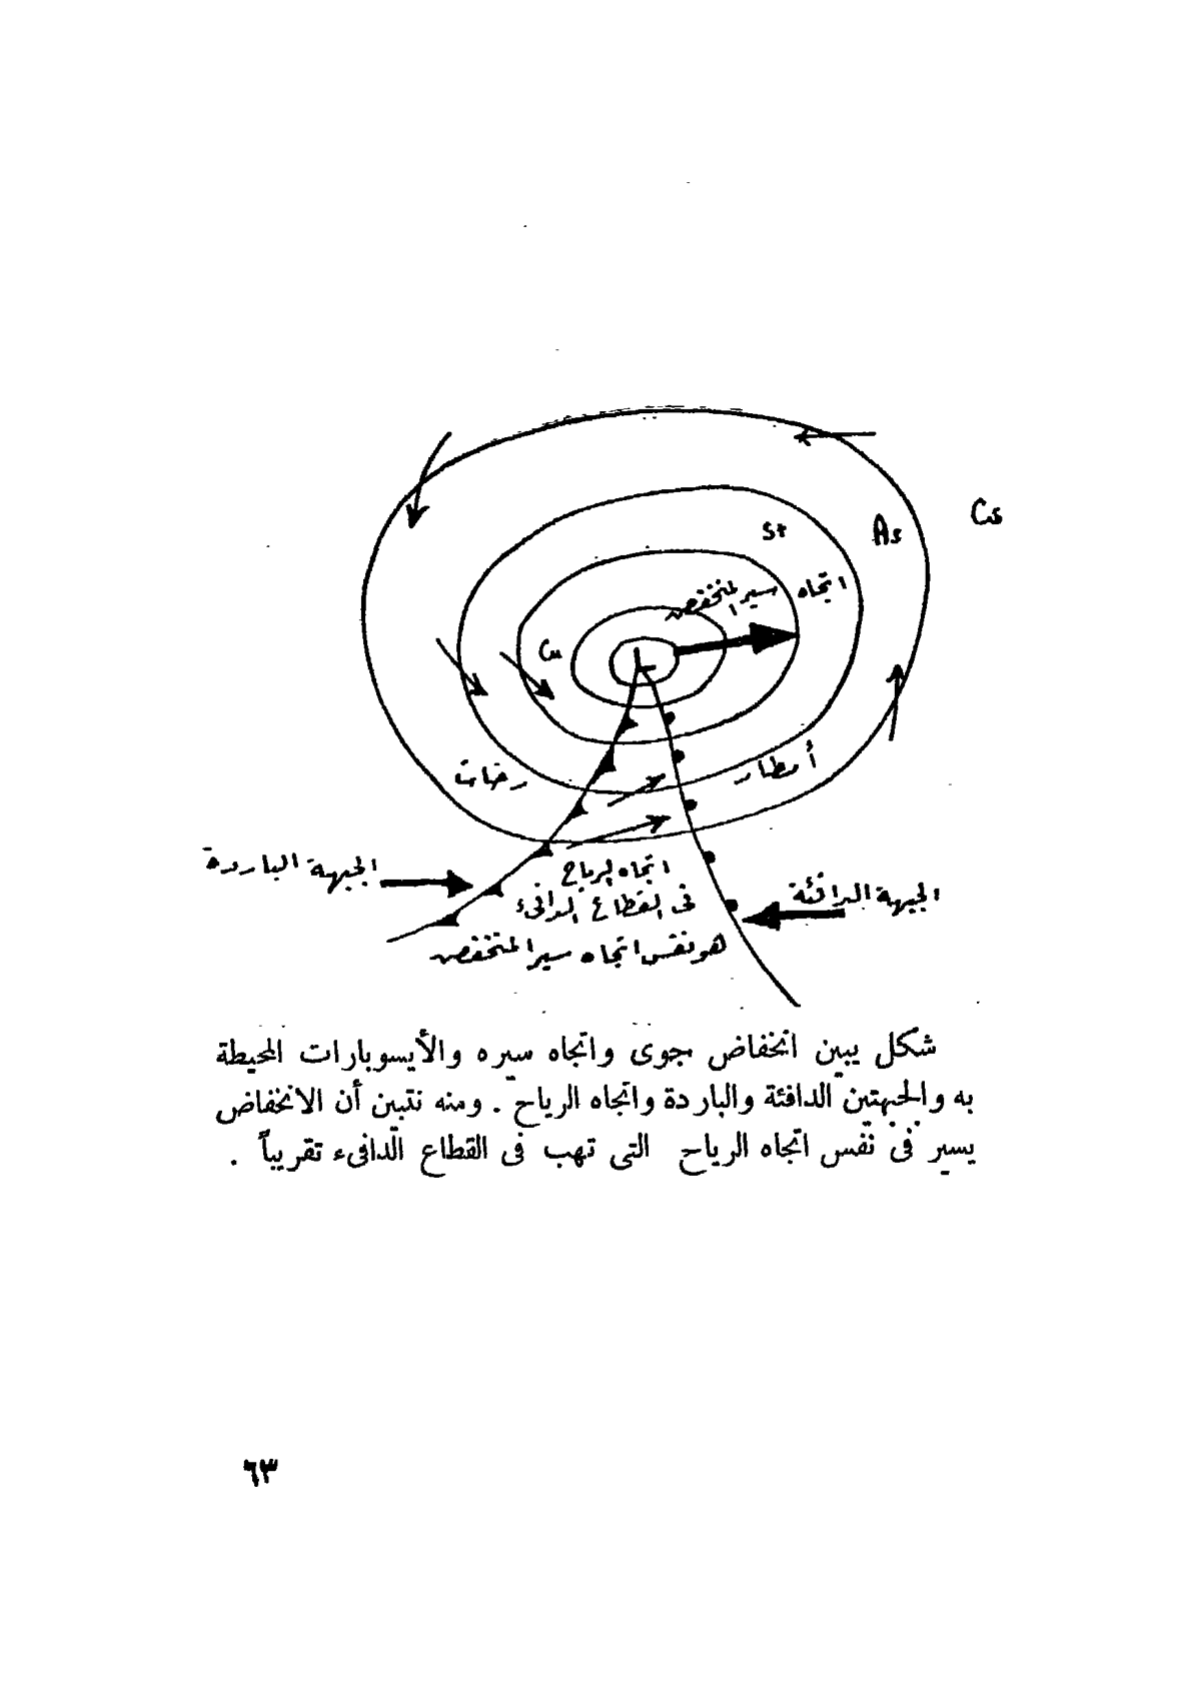 Cs
As
St
اتجاه سير المنخفض
Cu
أمطار
رخات
الجبهة الباردة
الجبهة الدافئة
اتجاه الرياح
فى القطاع الدافىء
هو نفس اتجاه سير المنخفض
شكل يبين انخفاض جوى واتجاه سيره والأيسوبارات المحيطة
به والجبهتين الدافئة والباردة واتجاه الرياح . ومنه نتبين أن الانخفاض
يسير فى نفس اتجاه الرياح التى تهب فى القطاع الدافىء تقريباً .
٦٣